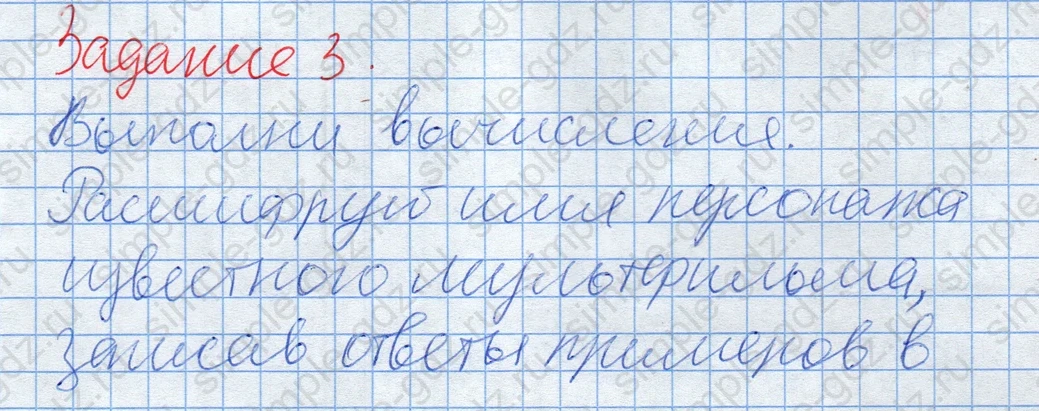 Задание 3.
Выполни вычисления.
Расшифруй имя персонажа
известного мультфильма,
записав ответы примеров в